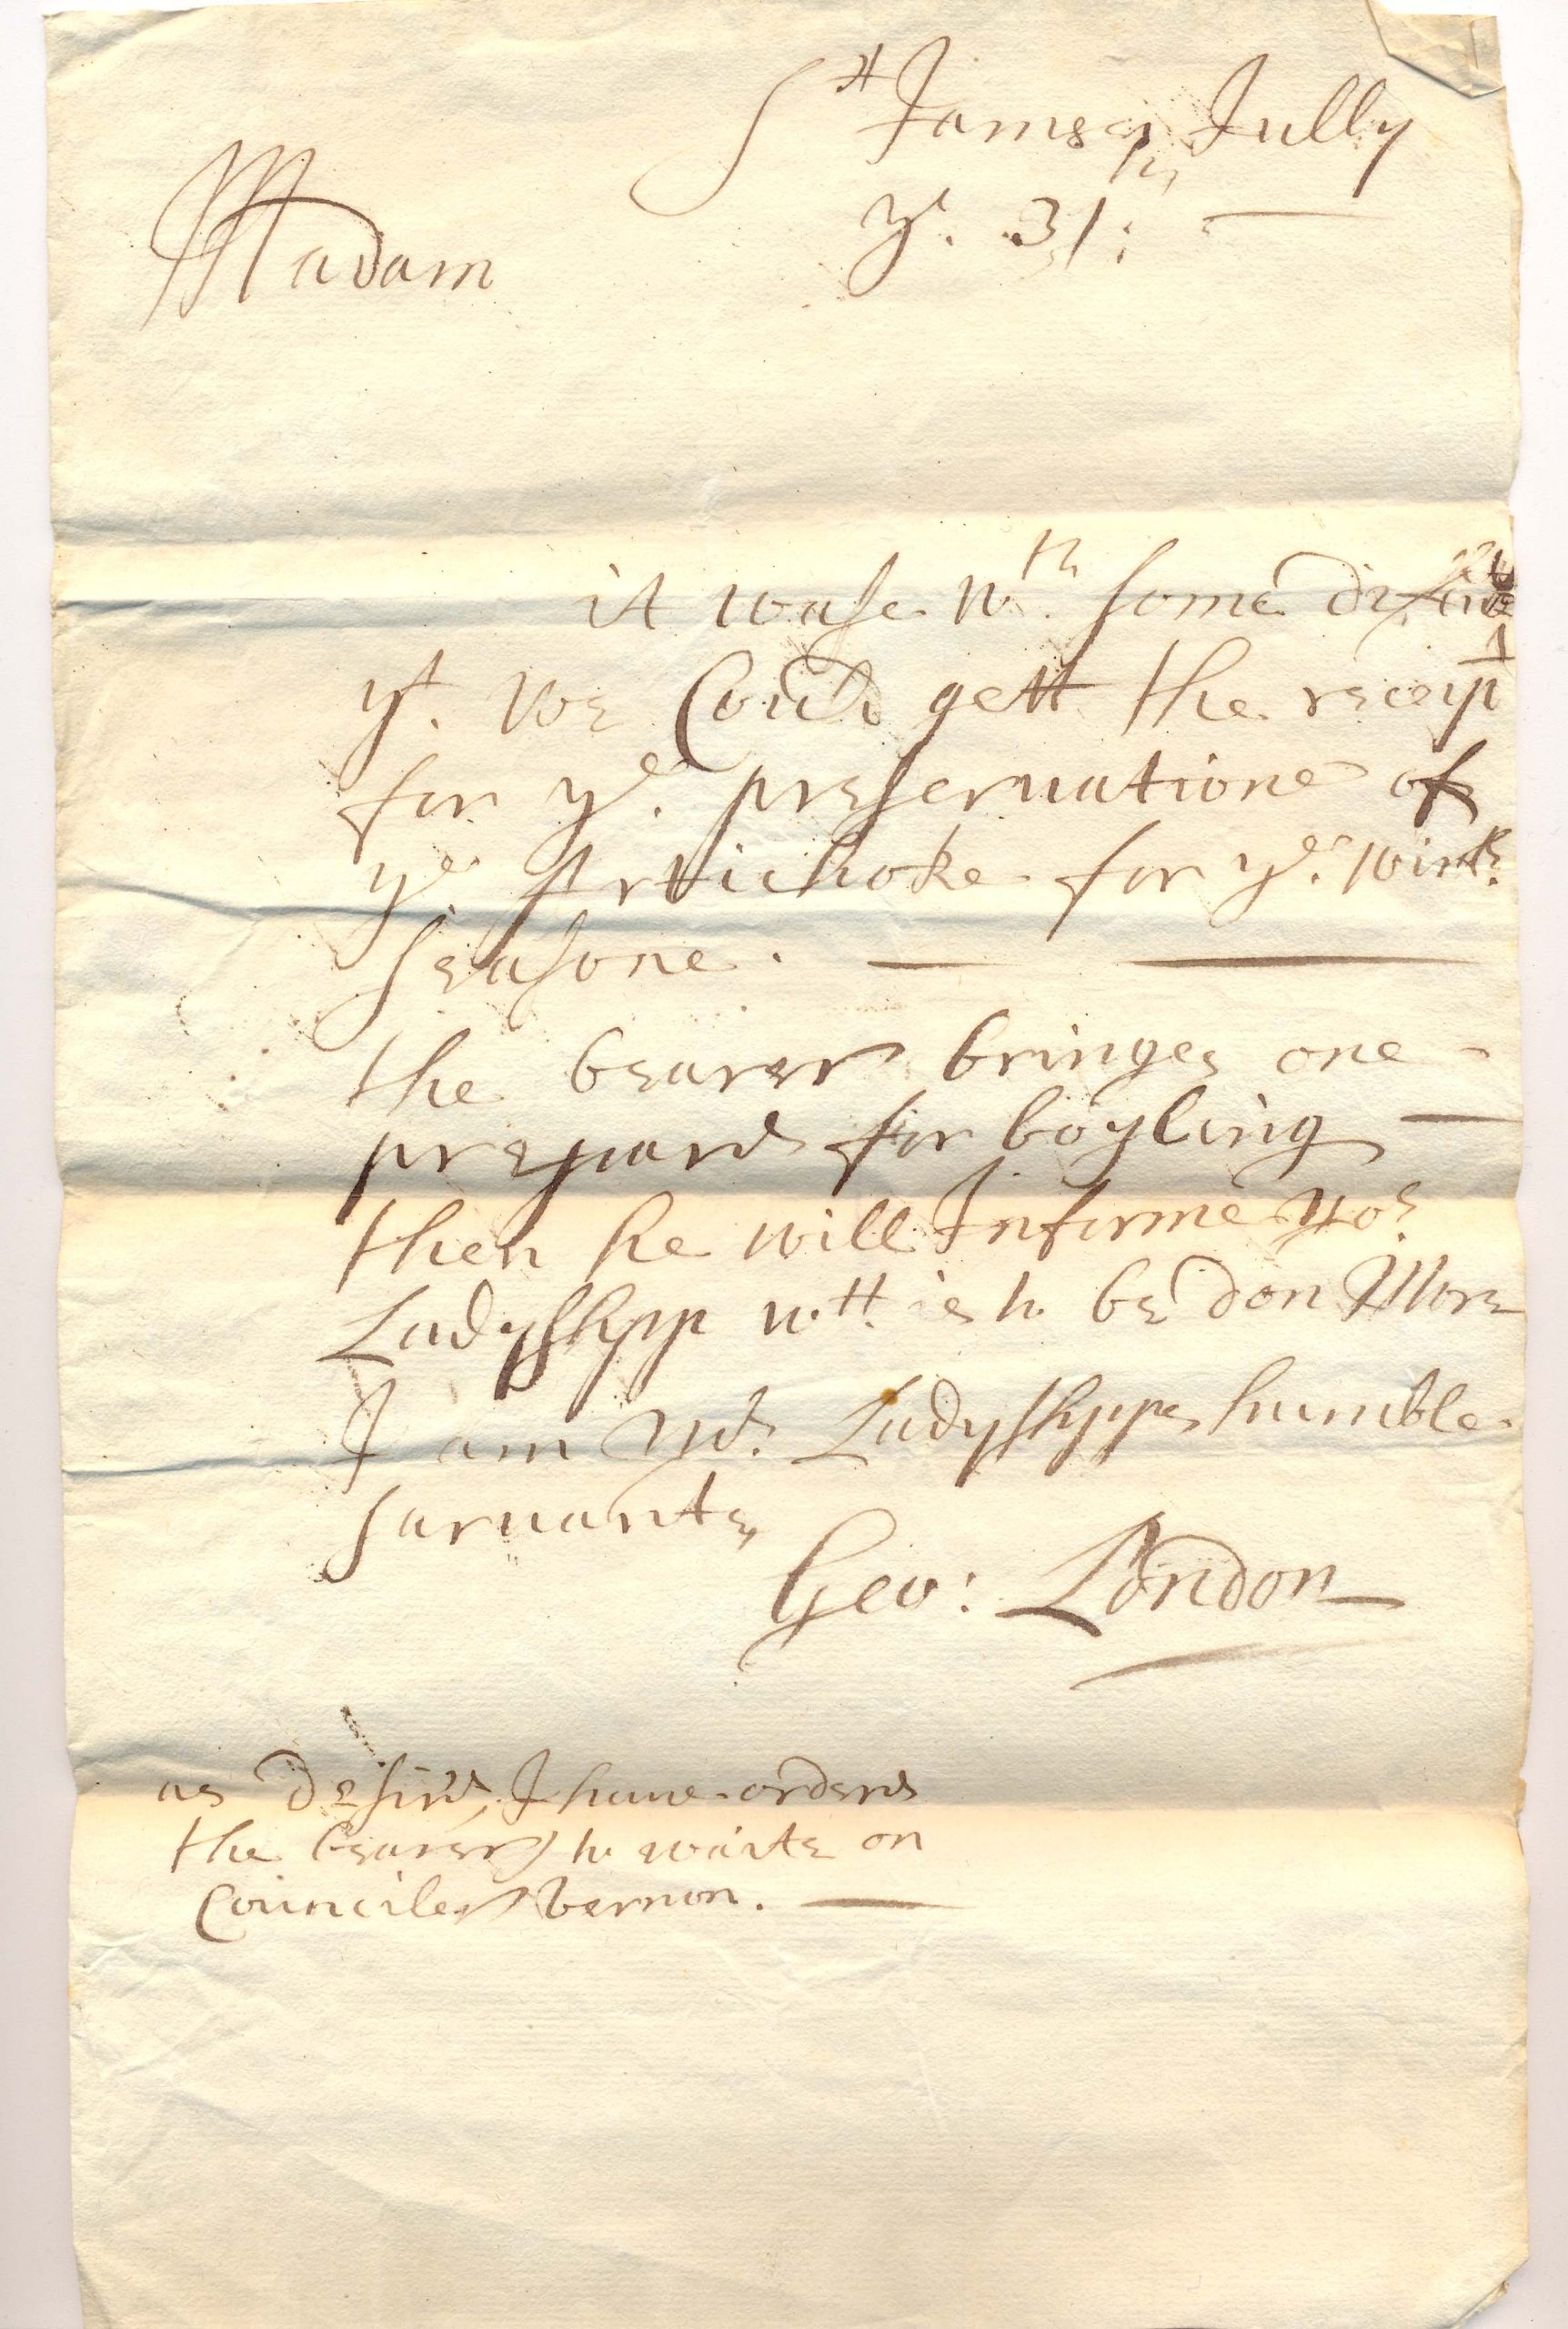 St Jameses Jully
ye. 31:
Madam
it wase wth. some
yt. we Could gett the receipt
for ye. preservatione of
ye. Artichoke for ye. wintr.
seasone.
the bearer bringes one
prepard for boyling
then he will Informe yor
Ladyshypp wtt. is to be don More
I am yor. Ladyshypps humble
sarvante
Geo: London
as desird, I have orderd
the bearer to waite on
Counciler Vernon.